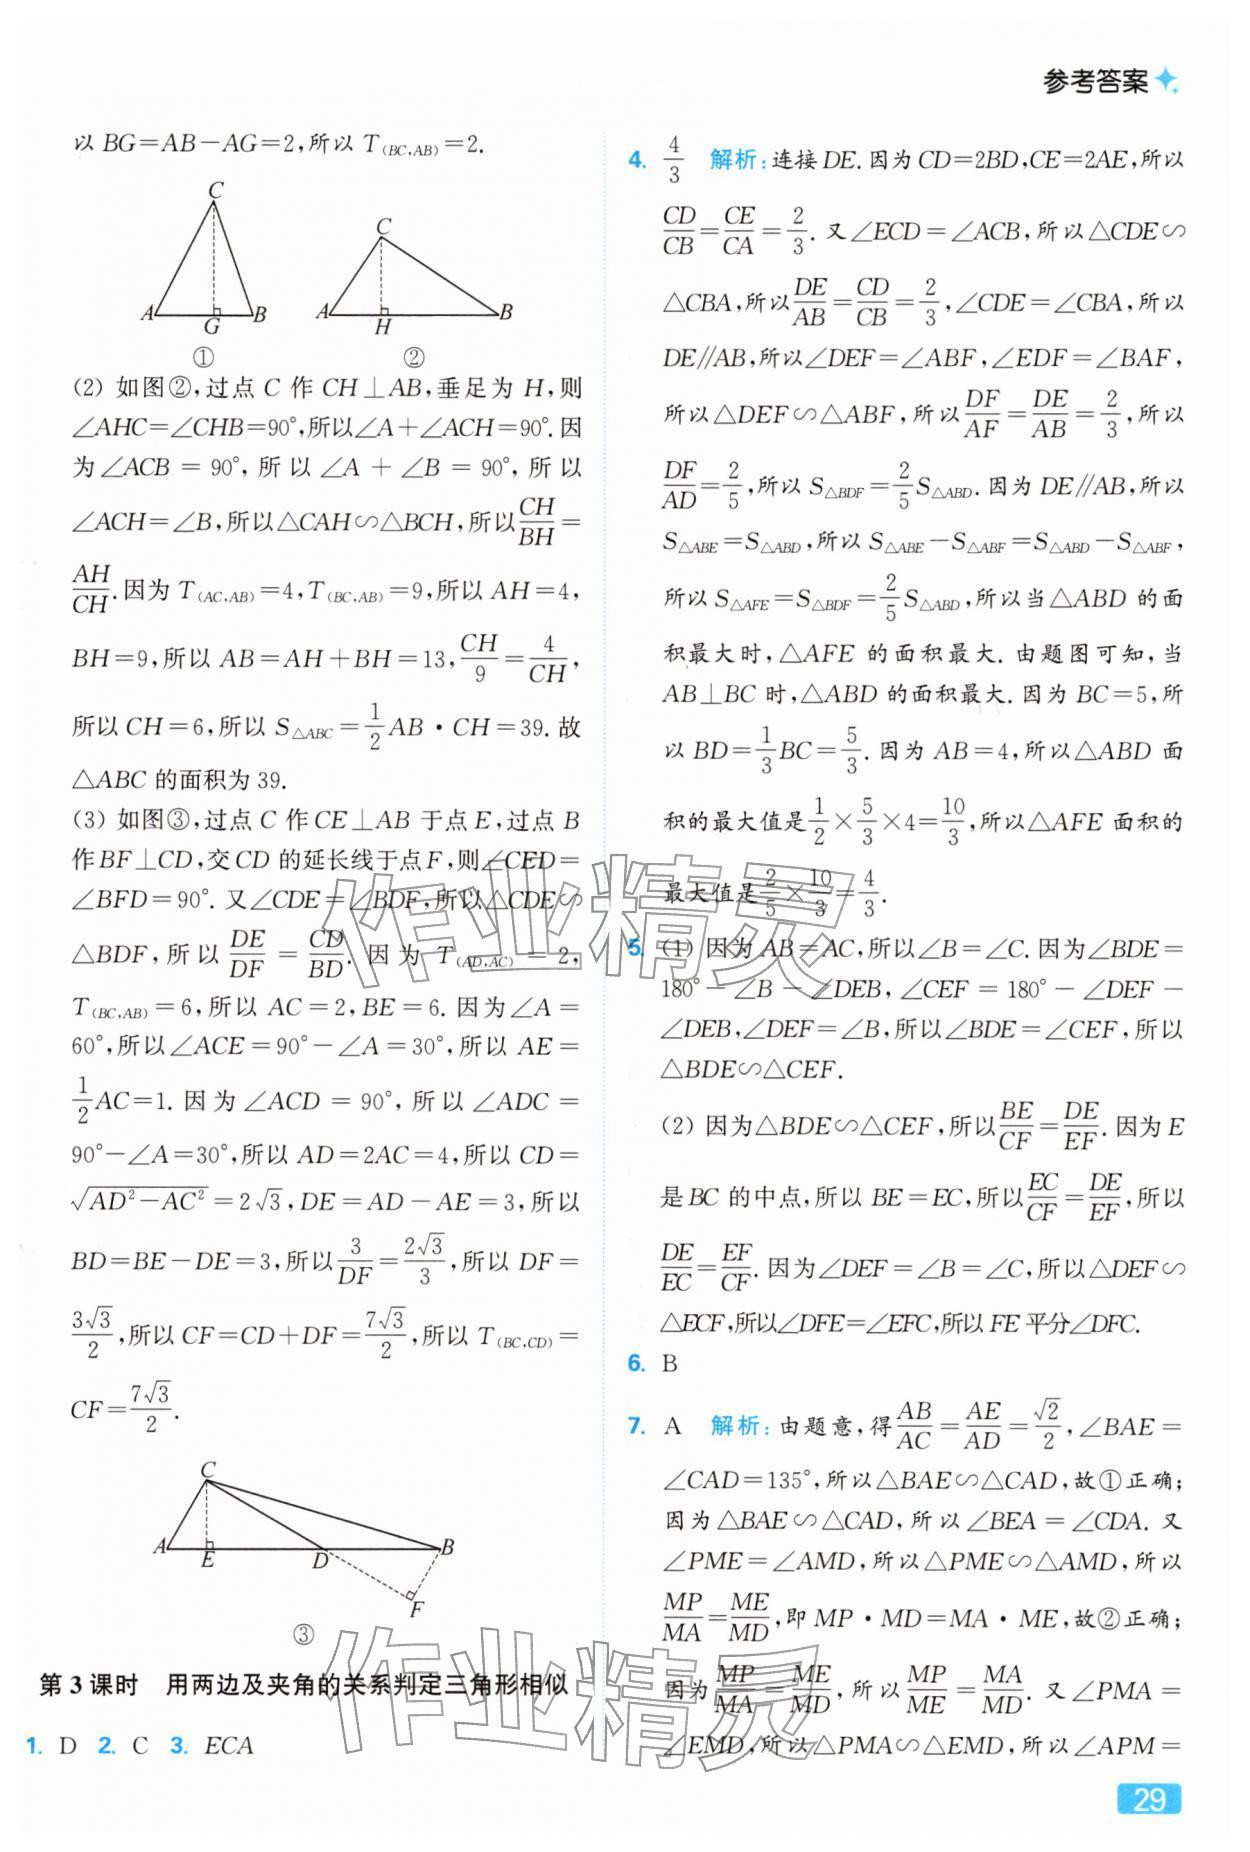 参考答案
以 BG=AB-AG=2,所以 T(BC,AB)=2.
C
A
G
B
①
C
A
H
B
②
(2) 如图②,过点 C 作 CH⊥AB,垂足为 H,则
∠AHC=∠CHB=90°,所以∠A+∠ACH=90°.因
为∠ACB = 90°,所以∠A + ∠B = 90°,所以
∠ACH=∠B,所以△CAH∽△BCH,所以CH/BH=
AH/CH.因为 T(AC,AB)=4,T(BC,AB)=9,所以 AH=4,
BH=9,所以 AB=AH+BH=13,CH/9=4/CH,
所以 CH=6,所以 S△ABC=1/2AB·CH=39.故
△ABC 的面积为 39.
(3) 如图③,过点 C 作 CE⊥AB 于点 E,过点 B
作 BF⊥CD,交 CD 的延长线于点 F,则∠CED=
∠BFD=90°.又∠CDE=∠BDF,所以△CDE∽
△BDF,所以 DE/DF = CD/BD.因为 T(AD,AC)=2,
T(BC,AB)=6,所以 AC=2,BE=6.因为∠A=
60°,所以∠ACE=90°-∠A=30°,所以 AE=
1/2AC=1.因为∠ACD = 90°,所以∠ADC =
90°-∠A=30°,所以 AD=2AC=4,所以 CD=
√(AD²-AC²)=2√3,DE=AD-AE=3,所以
BD=BE-DE=3,所以3/DF=2√3/3,所以 DF=
3√3/2,所以 CF=CD+DF=7√3/2,所以 T(BC,CD)=
CF=7√3/2.
C
A
E
D
B
F
③
第 3 课时 用两边及夹角的关系判定三角形相似
1. D 2. C 3. ECA
4. 4/3 解析:连接 DE.因为 CD=2BD,CE=2AE,所以
CD/CB=CE/CA=2/3.又∠ECD=∠ACB,所以△CDE∽
△CBA,所以DE/AB=CD/CB=2/3,∠CDE=∠CBA,所以
DE∥AB,所以∠DEF=∠ABF,∠EDF=∠BAF,
所以△DEF∽△ABF,所以DF/AF=DE/AB=2/3,所以
DF/AD=2/5,所以 S△BDF=2/5S△ABD.因为 DE∥AB,所以
S△ABE=S△ABD,所以 S△ABE-S△ABF=S△ABD-S△ABF,
所以 S△AFE=S△BDF=2/5S△ABD,所以当△ABD 的面
积最大时,△AFE 的面积最大.由题图可知,当
AB⊥BC 时,△ABD 的面积最大.因为 BC=5,所
以 BD=1/3BC=5/3.因为 AB=4,所以△ABD 面
积的最大值是1/2×5/3×4=10/3,所以△AFE 面积的
最大值是2/5×10/3=4/3.
5. (1) 因为 AB=AC,所以∠B=∠C.因为∠BDE=
180°-∠B-∠DEB,∠CEF=180°-∠DEF-
∠DEB,∠DEF=∠B,所以∠BDE=∠CEF,所以
△BDE∽△CEF.
(2) 因为△BDE∽△CEF,所以BE/CF=DE/EF.因为 E
是 BC 的中点,所以 BE=EC,所以EC/CF=DE/EF,所以
DE/EC=EF/CF.因为∠DEF=∠B=∠C,所以△DEF∽
△ECF,所以∠DFE=∠EFC,所以 FE 平分∠DFC.
6. B
7. A 解析:由题意,得AB/AC=AE/AD=√2/2,∠BAE=
∠CAD=135°,所以△BAE∽△CAD,故①正确;
因为△BAE∽△CAD,所以∠BEA=∠CDA.又
∠PME=∠AMD,所以△PME∽△AMD,所以
MP/MA=ME/MD,即 MP·MD=MA·ME,故②正确;
因为MP/MA=ME/MD,所以MP/ME=MA/MD.又∠PMA=
∠EMD,所以△PMA∽△EMD,所以∠APM=
作业精灵
作业精灵
29